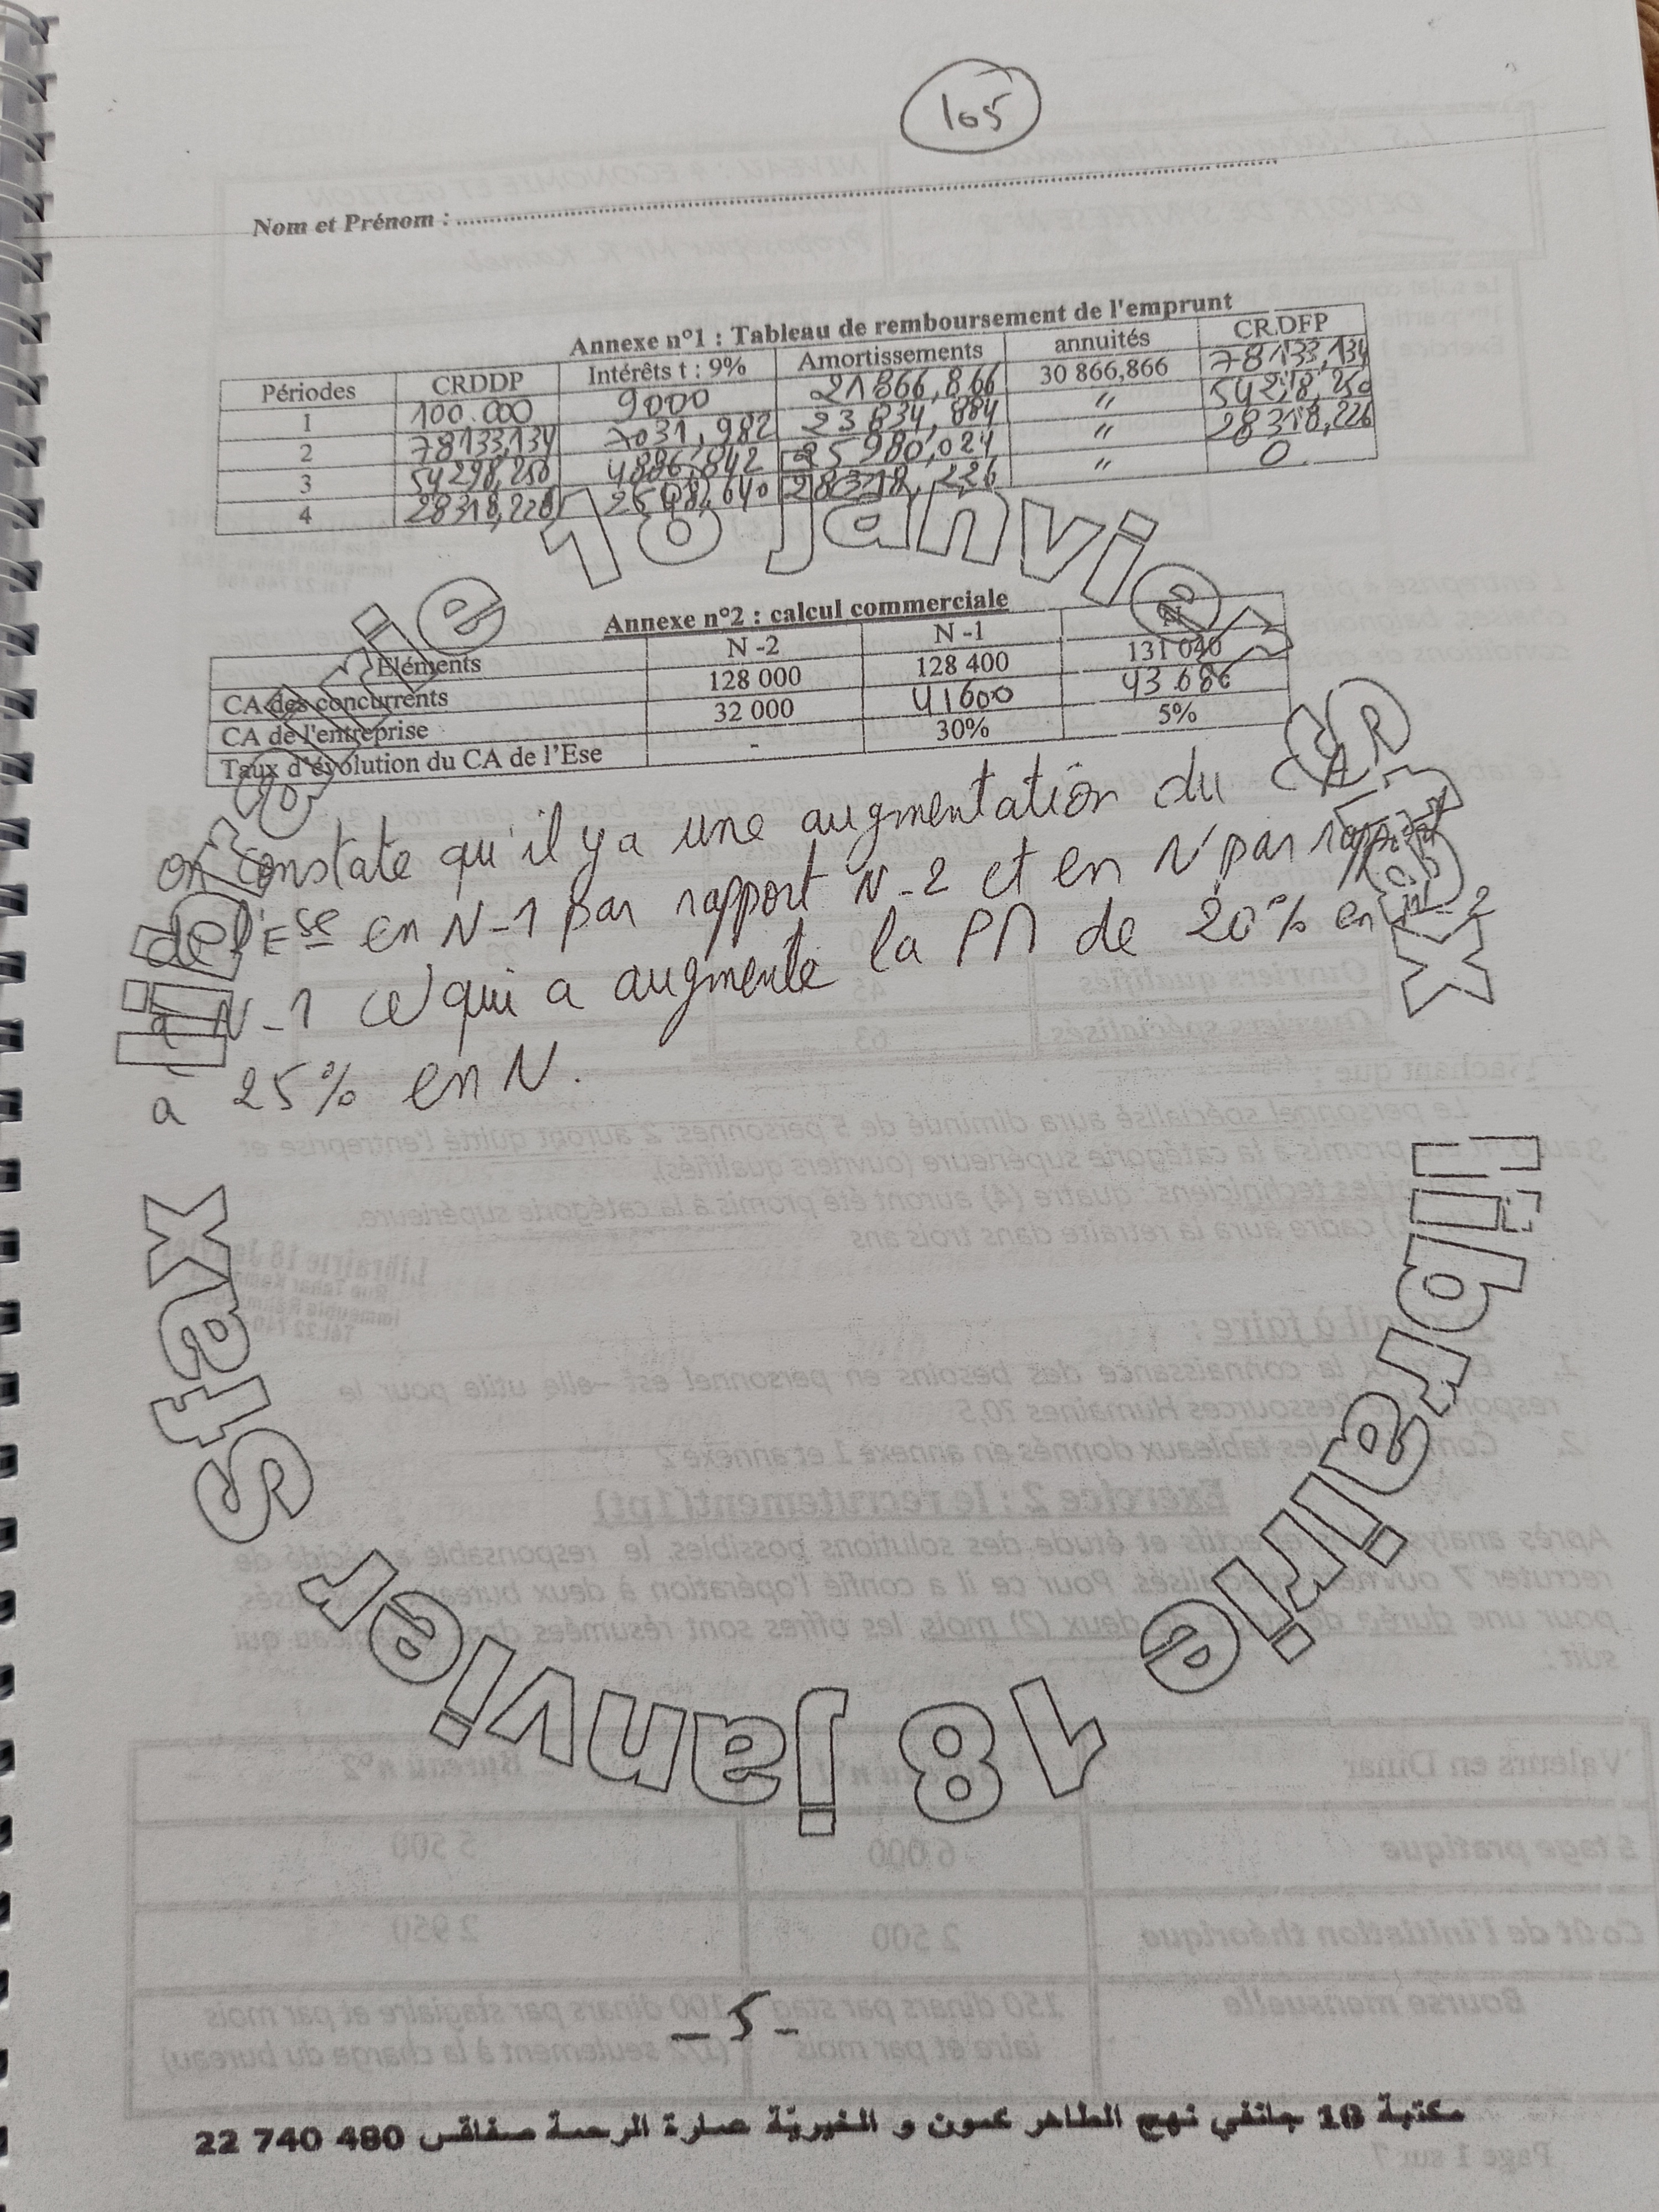 105
Nom et Prénom : ........................................
Annexe n°1 : Tableau de remboursement de l'emprunt
Périodes CRDDP Intérêts t : 9% Amortissements annuités CRDFP
1 100.000 9000 21866,866 30 866,866 78133,134
2 78133,134 7031,982 23834,884 " 54298,250
3 54298,250 4886,842 25980,024 " 28318,226
4 28318,226 2548,640 28318,226 " 0
Annexe n°2 : calcul commerciale
Eléments N -2 N -1 N
CA des concurrents 128 000 128 400 131 040
CA de l'entreprise 32 000 41600 43 680
Taux d'évolution du CA de l'Ese - 30% 5%
on constate qu'il y a une augmentation du CA
de l'Ese en N-1 par rapport N-2 et en N par rapport
à N-1 ce qui a augmenté la PM de 20% en N-2
à 25% en N.
librairie 18 janvier Sfax
librairie 18 janvier Sfax
- 5 -
مكتبة 18 جانفي نهج الطاهر كمون و الخيريّة عمارة الرحمة صفاقس 22 740 480